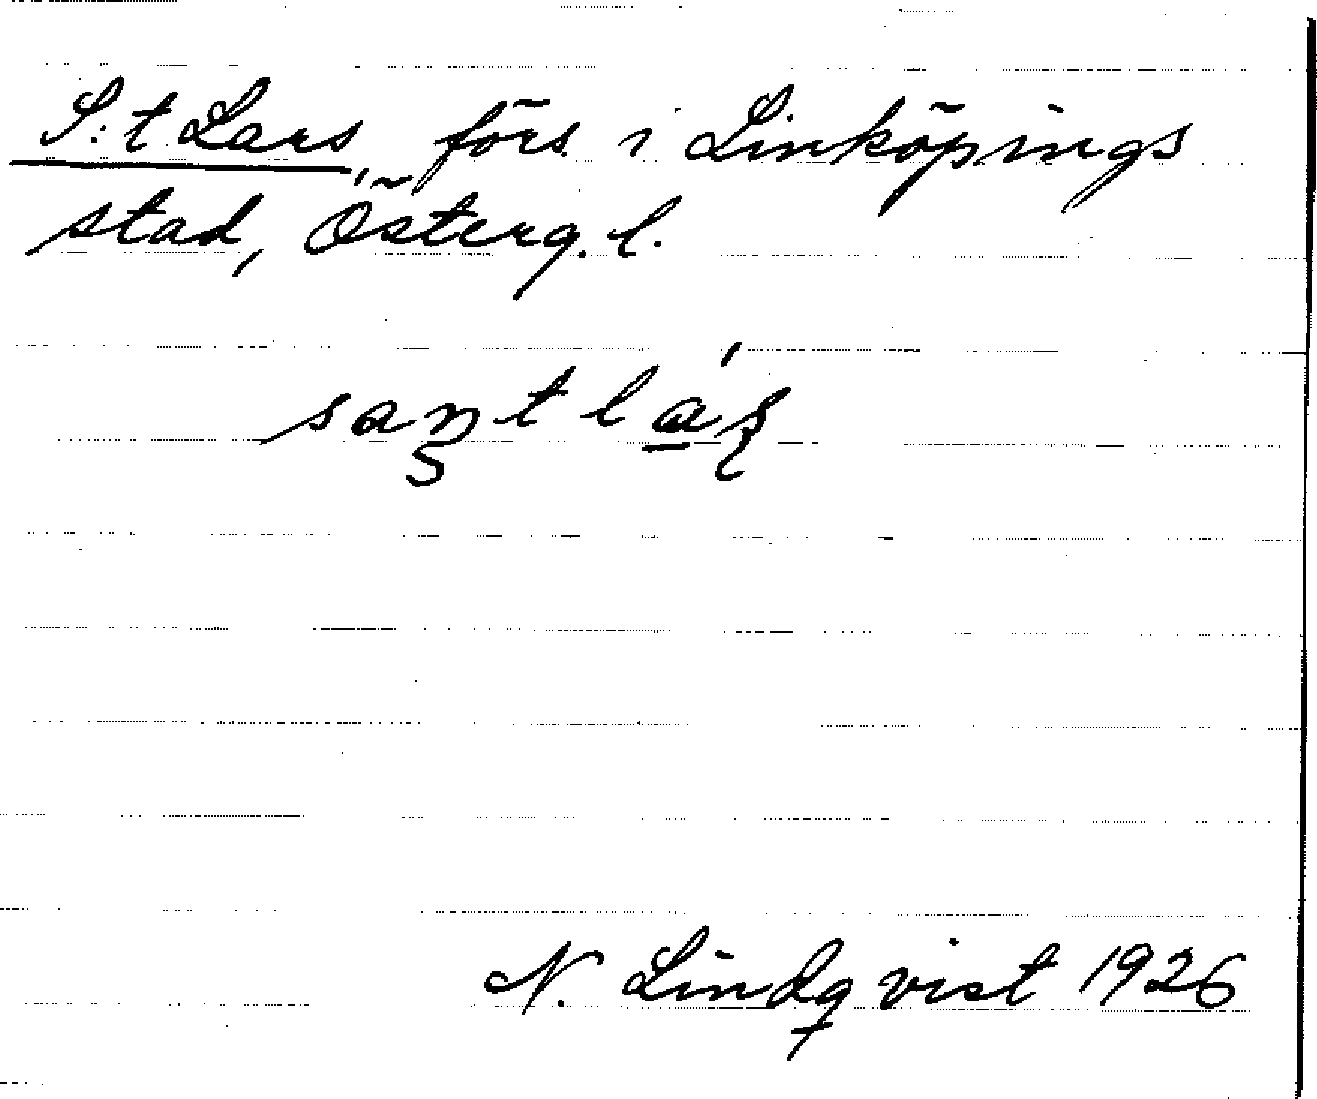 S:t Lars, förs. i Linköpings
stad, Österg. l.
san̥t lá̱ʂ
N. Lindqvist 1926